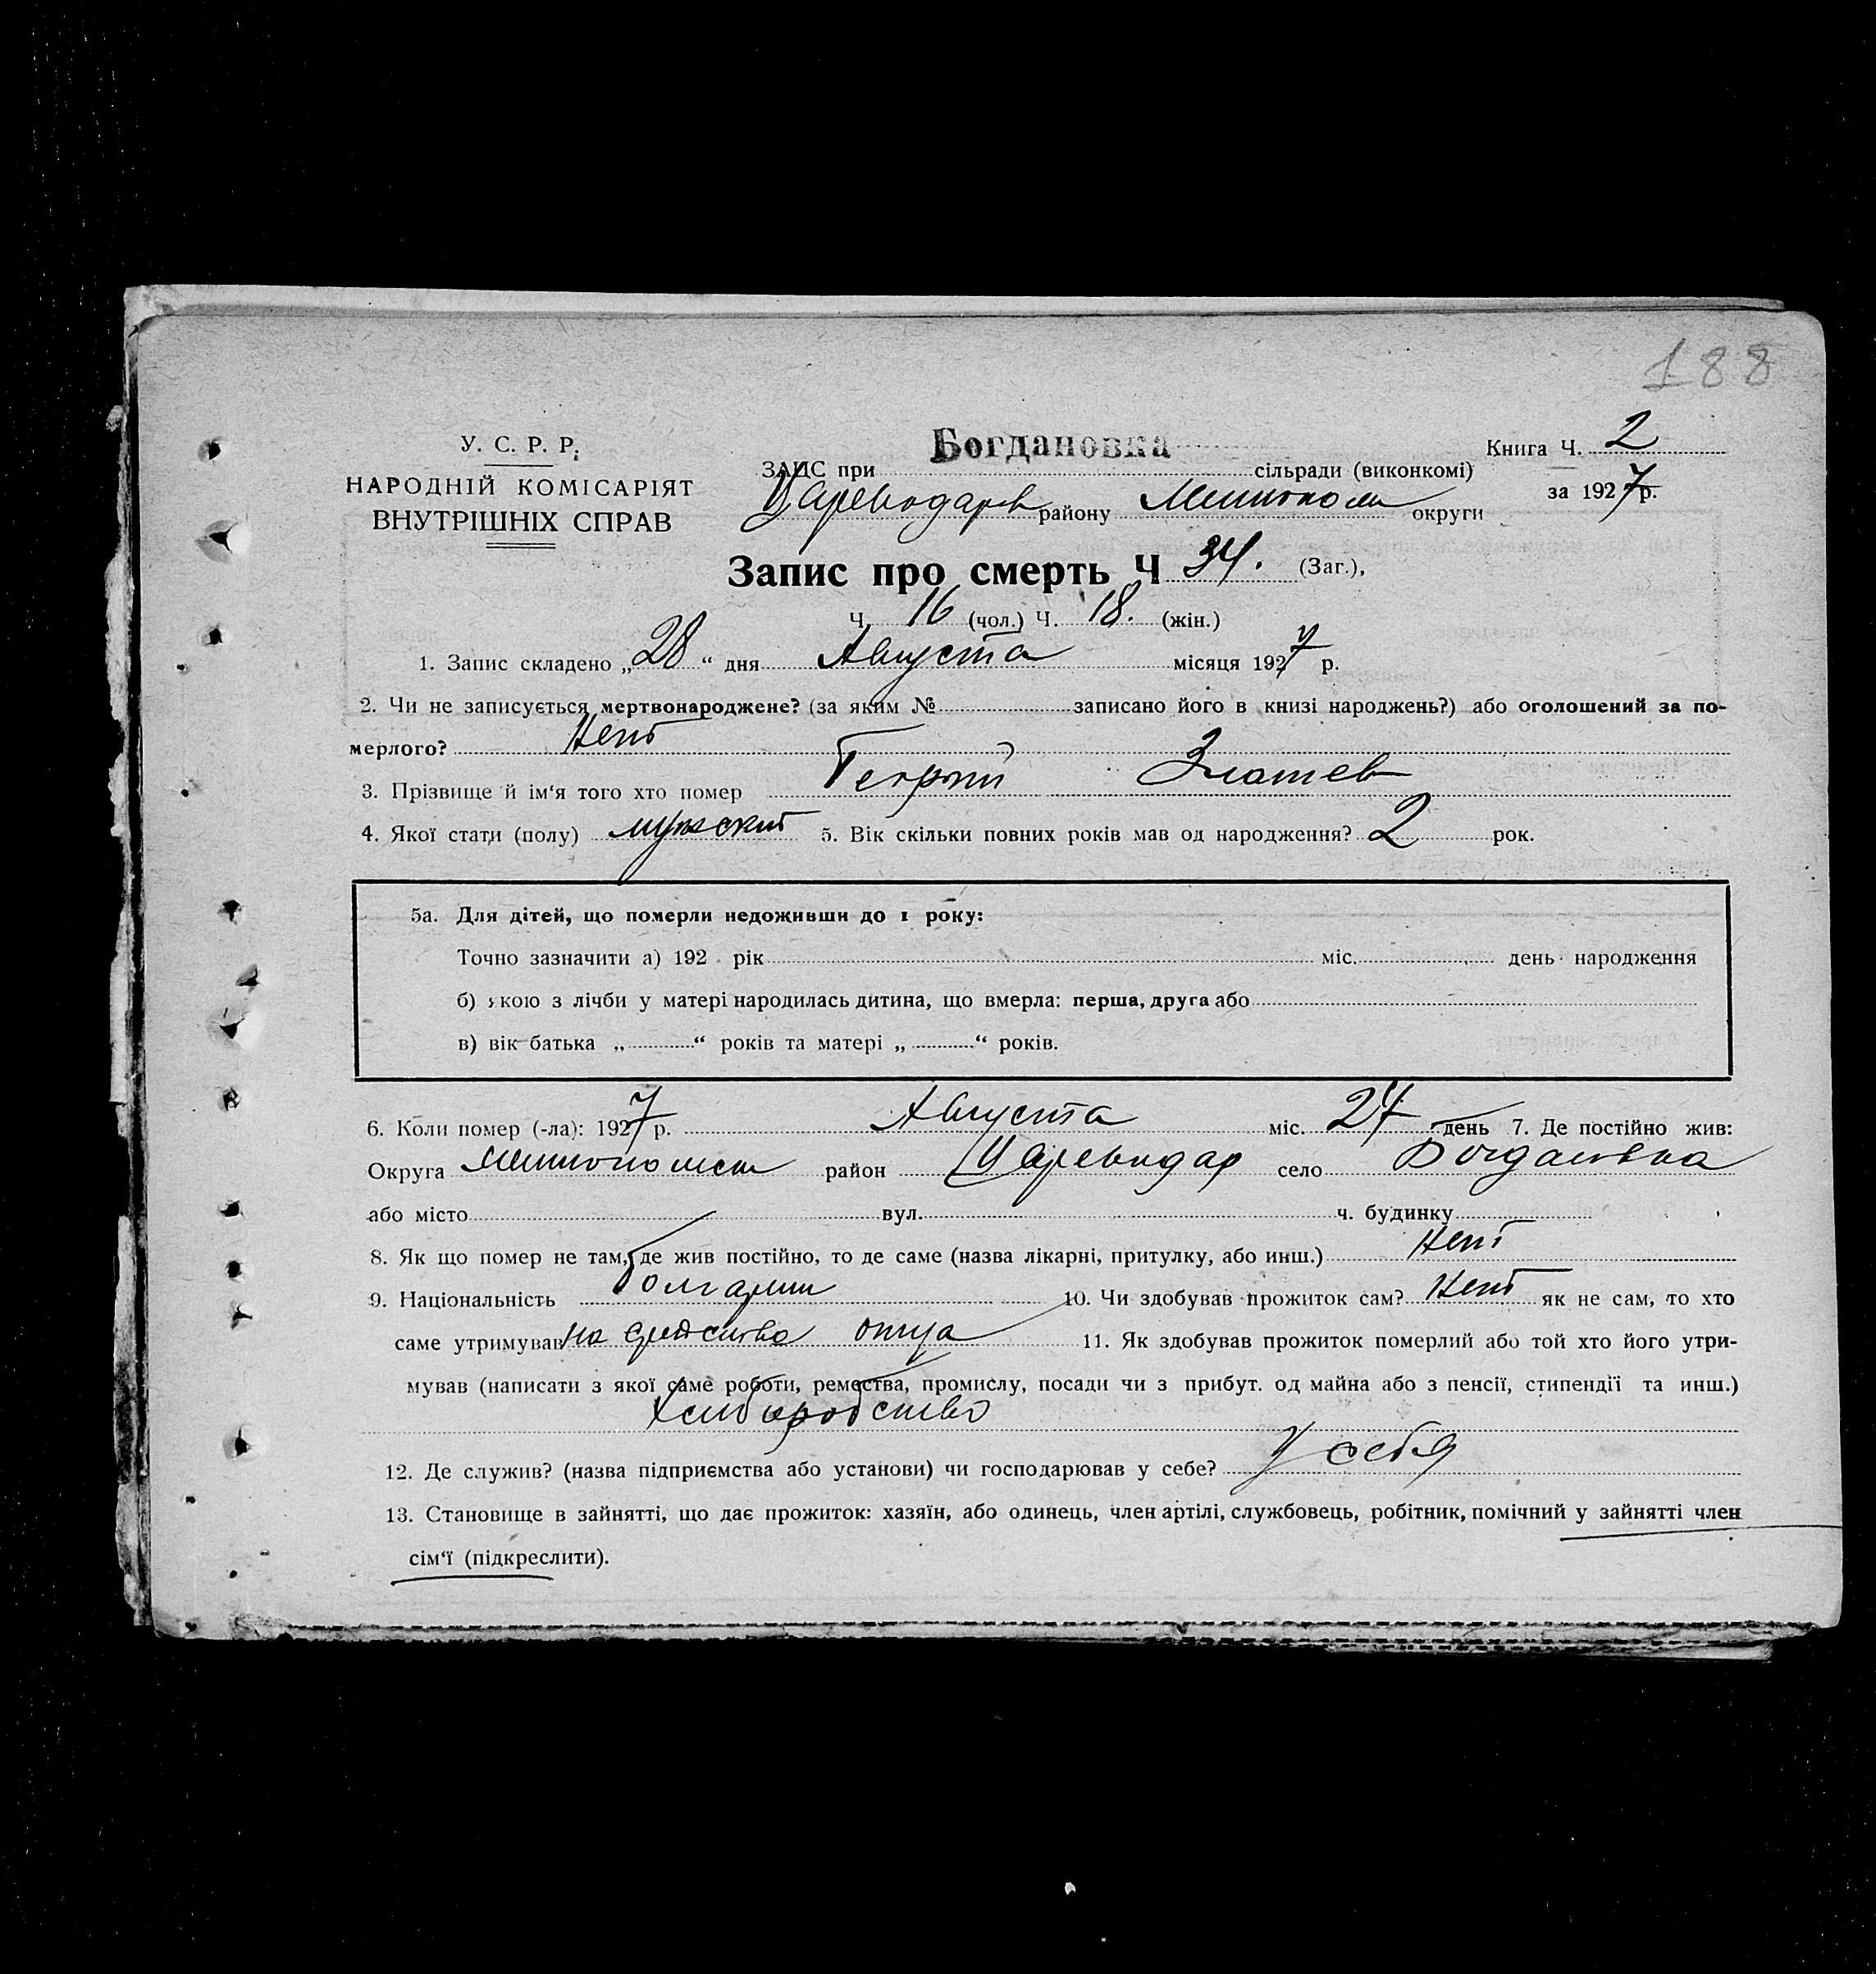 188
У. С. Р. Р.
НАРОДНІЙ КОМІСАРІЯТ
ВНУТРІШНІХ СПРАВ
ЗАГС при Богдановка сільради (виконкомі)
Цареводаров району округи
Книга Ч. 2
за 1927 р.
Запис про смерть Ч 34. (Заг.),
Ч. 16 (чол.) Ч. 18. (жін.)
1. Запис складено „28“ дня Августа місяця 1927 р.
2. Чи не записується мертвонароджене? (за яким № записано його в книзі народжень?) або оголошений за по-
мерлого? Нет
3. Прізвище й ім‘я того хто помер Георгий Златев
4. Якої стати (полу) мужской 5. Вік скільки повних років мав од народження? 2 рок.
5а. Для дітей, що померли недоживши до 1 року:
Точно зазначити а) 192 рік міс. день народження
б) якою з лічби у матері народилась дитина, що вмерла: перша, друга або
в) вік батька „ “ років та матері „ “ років.
6. Коли помер (-ла): 1927 р. Августа міс. 27 день 7. Де постійно жив:
Округа район Цареводар село Богдановка
або місто вул. ч. будинку
8. Як що помер не там, де жив постійно, то де саме (назва лікарні, притулку, або инш.) Нет
9. Національність Болгарин 10. Чи здобував прожиток сам? Нет як не сам, то хто
саме утримував на средства отца 11. Як здобував прожиток померлий або той хто його утри-
мував (написати з якої саме роботи, ремества, промислу, посади чи з прибут. од майна або з пенсії, стипендії та инш.)
Хлебородство
12. Де служив? (назва підприємства або установи) чи господарював у себе? У себя
13. Становище в зайнятті, що дає прожиток: хазяїн, або одинець, член артілі, службовець, робітник, помічний у зайнятті член
сім‘ї (підкреслити).